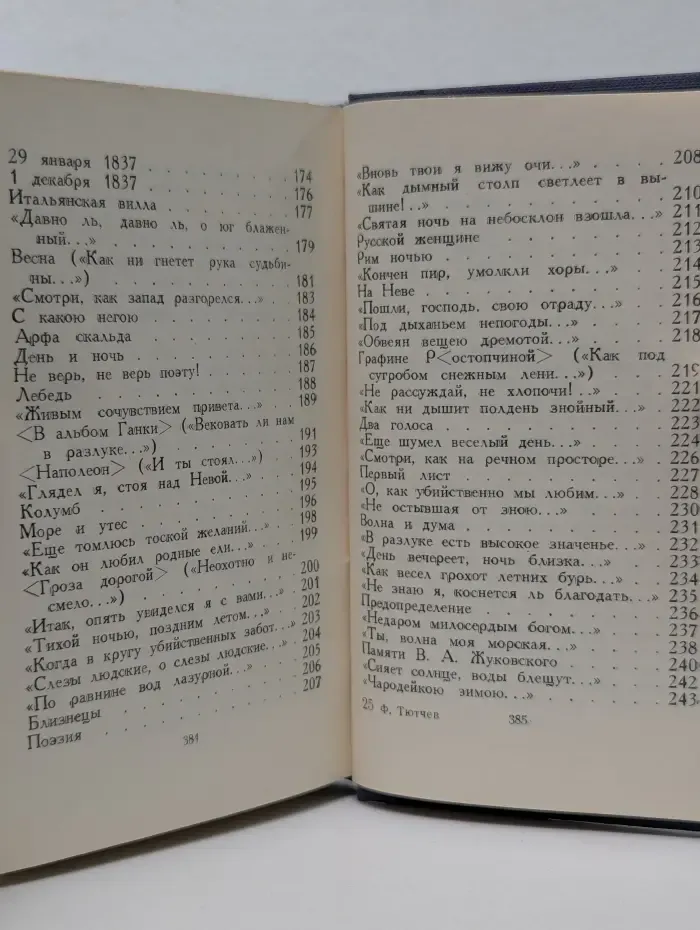 29 января 1837 . . . . . . . . 174
1 декабря 1837 . . . . . . . . 176
Итальянская вилла . . . . . . . 177
«Давно ль, давно ль, о юг блажен-
ный. . .» . . . . . . . . 179
Весна («Как ни гнетет рука судьби-
ны. . .») . . . . . . . . 181
«Смотри, как запад разгорелся. . .» . . 183
С какою негою . . . . . . . 184
Арфа скальда . . . . . . . 185
День и ночь . . . . . . . 186
Не верь, не верь поэту! . . . . . 187
Лебедь . . . . . . . . 188
«Живым сочувствием привета. . .» . . 189
<В альбом Ганки> («Вековать ли нам
в разлуке. . .») . . . . . . 191
<Наполеон> («И ты стоял. . .») . . . 193
«Глядел я, стоя над Невой. . .» . . . 194
Колумб . . . . . . . . 195
Море и утес . . . . . . . 196
«Еще томлюсь тоской желаний. . .» . . 198
«Как он любил родные ели. . .» . . . 199
<Гроза дорогой> («Неохотно и не-
смело. . .») . . . . . . . 200
«Итак, опять увиделся я с вами. . .» . . 201
«Тихой ночью, поздним летом. . .» . . 202
«Когда в кругу убийственных забот. . .» . 203
«Слезы людские, о слезы людские. . .» . 204
«По равнине вод лазурной. . .» . . . 205
Близнецы . . . . . . . . 206
Поэзия . . . . . . . . 207
384
«Вновь твои я вижу очи. . .» . . . . 208
«Как дымный столп светлеет в вы-
шине!. .» . . . . . . . . 210
«Святая ночь на небосклон взошла. . .» 211
Русской женщине . . . . . . . 212
Рим ночью . . . . . . . . 213
«Кончен пир, умолкли хоры. . .» . . . 214
На Неве . . . . . . . . 215
«Пошли, господь, свою отраду. . .» . . 216
«Под дыханьем непогоды. . .» . . . 217
«Обвеян вещею дремотой. . .» . . . 218
Графине Р<остопчиной> («Как под
сугробом снежным лени. . .») . . . 219
«Не рассуждай, не хлопочи!. .» . . . 221
«Как ни дышит полдень знойный. . .» . 222
Два голоса . . . . . . . . 223
«Еще шумел веселый день. . .» . . . 224
«Смотри, как на речном просторе. . .» . 226
Первый лист . . . . . . . . 227
«О, как убийственно мы любим. . .» . . 228
«Не остывшая от зною. . .» . . . . 230
Волна и дума . . . . . . . . 231
«В разлуке есть высокое значенье. . .» . 232
«День вечереет, ночь близка. . .» . . . 233
«Как весел грохот летних бурь. . .» . . 234
«Не знаю я, коснется ль благодать. . .» . 235
Предопределение . . . . . . . 236
«Недаром милосердым богом. . .» . . . 237
«Ты, волна моя морская. . .» . . . . 238
Памяти В. А. Жуковского . . . . . 240
«Сияет солнце, воды блещут. . .» . . . 242
«Чародейкою зимою. . .» . . . . . 243
25 Ф. Тютчев 385